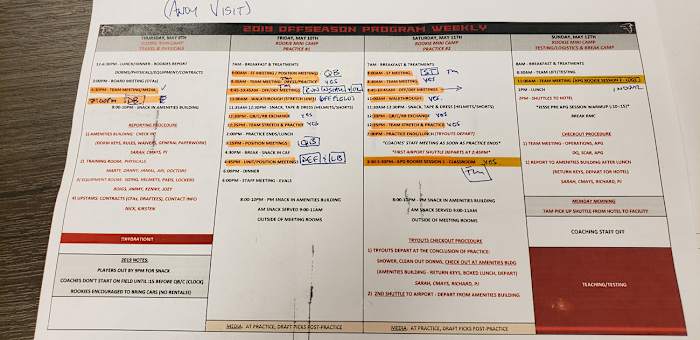 (ANDY VISIT)
2019 OFFSEASON PROGRAM WEEKLY
THURSDAY, MAY 9TH
ROOKIE MINI CAMP
TRAVEL & PHYSICALS
12-4:30PM - LUNCH/DINNER - ROOKIES REPORT
DORMS/PHYSICALS/EQUIPMENT/CONTRACTS
3:00PM - BOARD MEETING (STAL)
6:30PM - TEAM MEETING/MEDIA
DB
8:00-10PM - SNACK IN AMENITIES BUILDING
REPORTING PROCEDURE
1) AMENITIES BUILDING: CHECK IN
(DORM KEYS, RULES, WAIVERS, GENERAL PAPERWORK)
SARAH, CMAYS, PJ
2) TRAINING ROOM: PHYSICALS
MARTY, DANNY, JAMAL, API, DOCTORS
3) EQUIPMENT ROOM: SIZING, HELMETS, PADS, LOCKERS
BOIGS, JIMMY, KENNY, JOEY
4) UPSTAIRS: CONTRACTS (CFAs, DRAFTEES), CONTACT INFO
NICK, KIRSTEN
THYBRATION!!
2019 NOTES:
PLAYERS OUT BY 9PM FOR SNACK
COACHES DON'T START ON FIELD UNTIL :15 BEFORE QB/C (CLOCK)
ROOKIES ENCOURAGED TO BRING CARS (NO RENTALS!)
FRIDAY, MAY 10TH
ROOKIE MINI CAMP
PRACTICE #1
7AM - BREAKFAST & TREATMENTS
8:00AM - ST MEETING / POSITION MEETING QB
8:30AM - TEAM MEETING - OFF/DEF/PRACTICE YES
8:45-10:45AM - OFF/DEF MEETINGS
11:00AM - WALKTHROUGH (STRETCH)
11:35AM-12:20PM - SNACK, TAPE & DRESS (HELMETS/SHORTS)
12:20PM - QB/C/RB EXCHANGE YES
12:35PM - TEAM STRETCH & PRACTICE YES
2:00PM - PRACTICE ENDS/LUNCH
3:15PM - POSITION MEETINGS QB
4:30PM - BREAK - SNACK IN CAF
4:45PM - UNIT/POSITION MEETINGS DEF LB
6:00PM - DINNER
6:00PM - STAFF MEETING - EVALS
8:00-10PM - PM SNACK IN AMENITIES BUILDING
AM SNACK SERVED 9:00-11AM
OUTSIDE OF MEETING ROOMS
MEDIA: AT PRACTICE, DRAFT PICKS POST-PRACTICE
SATURDAY, MAY 11TH
ROOKIE MINI CAMP
PRACTICE #2
7AM - BREAKFAST & TREATMENTS
8:00AM - ST MEETING ST
8:30AM - TEAM MEETING YES
8:45-10:45AM - OFF/DEF MEETINGS
11:00AM - WALKTHROUGH YES
11:35AM-12:20PM - SNACK, TAPE & DRESS (HELMETS/SHORTS)
12:20PM - QB/C/RB EXCHANGE YES
12:35PM - TEAM STRETCH & PRACTICE YES
2:00PM - PRACTICE ENDS/LUNCH (TRYOUTS DEPART)
*COACHES' STAFF MEETING AS SOON AS PRACTICE ENDS*
*FIRST AIRPORT SHUTTLE DEPARTS AT 2:45PM*
APG ROOKIE SESSION 1 - CLASSROOM YES
8:00-10PM - PM SNACK IN AMENITIES BUILDING
AM SNACK SERVED 9:00-11AM
OUTSIDE OF MEETING ROOMS
TRYOUTS CHECKOUT PROCEDURE
1) TRYOUTS DEPART AT THE CONCLUSION OF PRACTICE:
SHOWER, CLEAN OUT DORMS, CHECK OUT AT AMENITIES BLDG
(AMENITIES BUILDING - RETURN KEYS, BOXED LUNCH, DEPART)
SARAH, CMAYS, RICHARD, PJ
2) 2ND SHUTTLE TO AIRPORT - DEPART FROM AMENITIES BUILDING
MEDIA: AT PRACTICE, DRAFT PICKS POST-PRACTICE
SUNDAY, MAY 12TH
ROOKIE MINI CAMP
TESTING/LOGISTICS & BREAK CAMP
8AM - BREAKFAST & TREATMENTS
8:30AM - TEAM LIFT/TESTING
11:00AM - TEAM MEETING (APG ROOKIE SESSION 2 - LOGS)
1PM - LUNCH
2PM - SHUTTLE TO HOTEL
BREAK RMC
CHECKOUT PROCEDURE
1) TEAM MEETING - OPERATIONS, APG
DQ, SCAR, APG
1) REPORT TO AMENITIES BUILDING AFTER LUNCH
(RETURN KEYS, DEPART FOR HOTEL)
SARAH, CMAYS, RICHARD, PJ
MONDAY MORNING
7AM PICK UP SHUTTLE FROM HOTEL TO FACILITY
COACHING STAFF OFF
TEACHING/TESTING